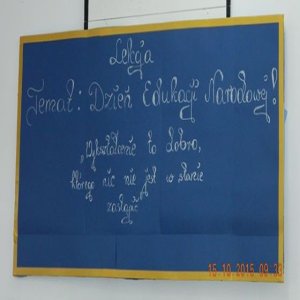 Lekcja
Temat: Dzień Edukacji Narodowej!
„Wykształcenie to dobro,
którego nic nie jest w stanie
zastąpić"
15.10.2015 08:38